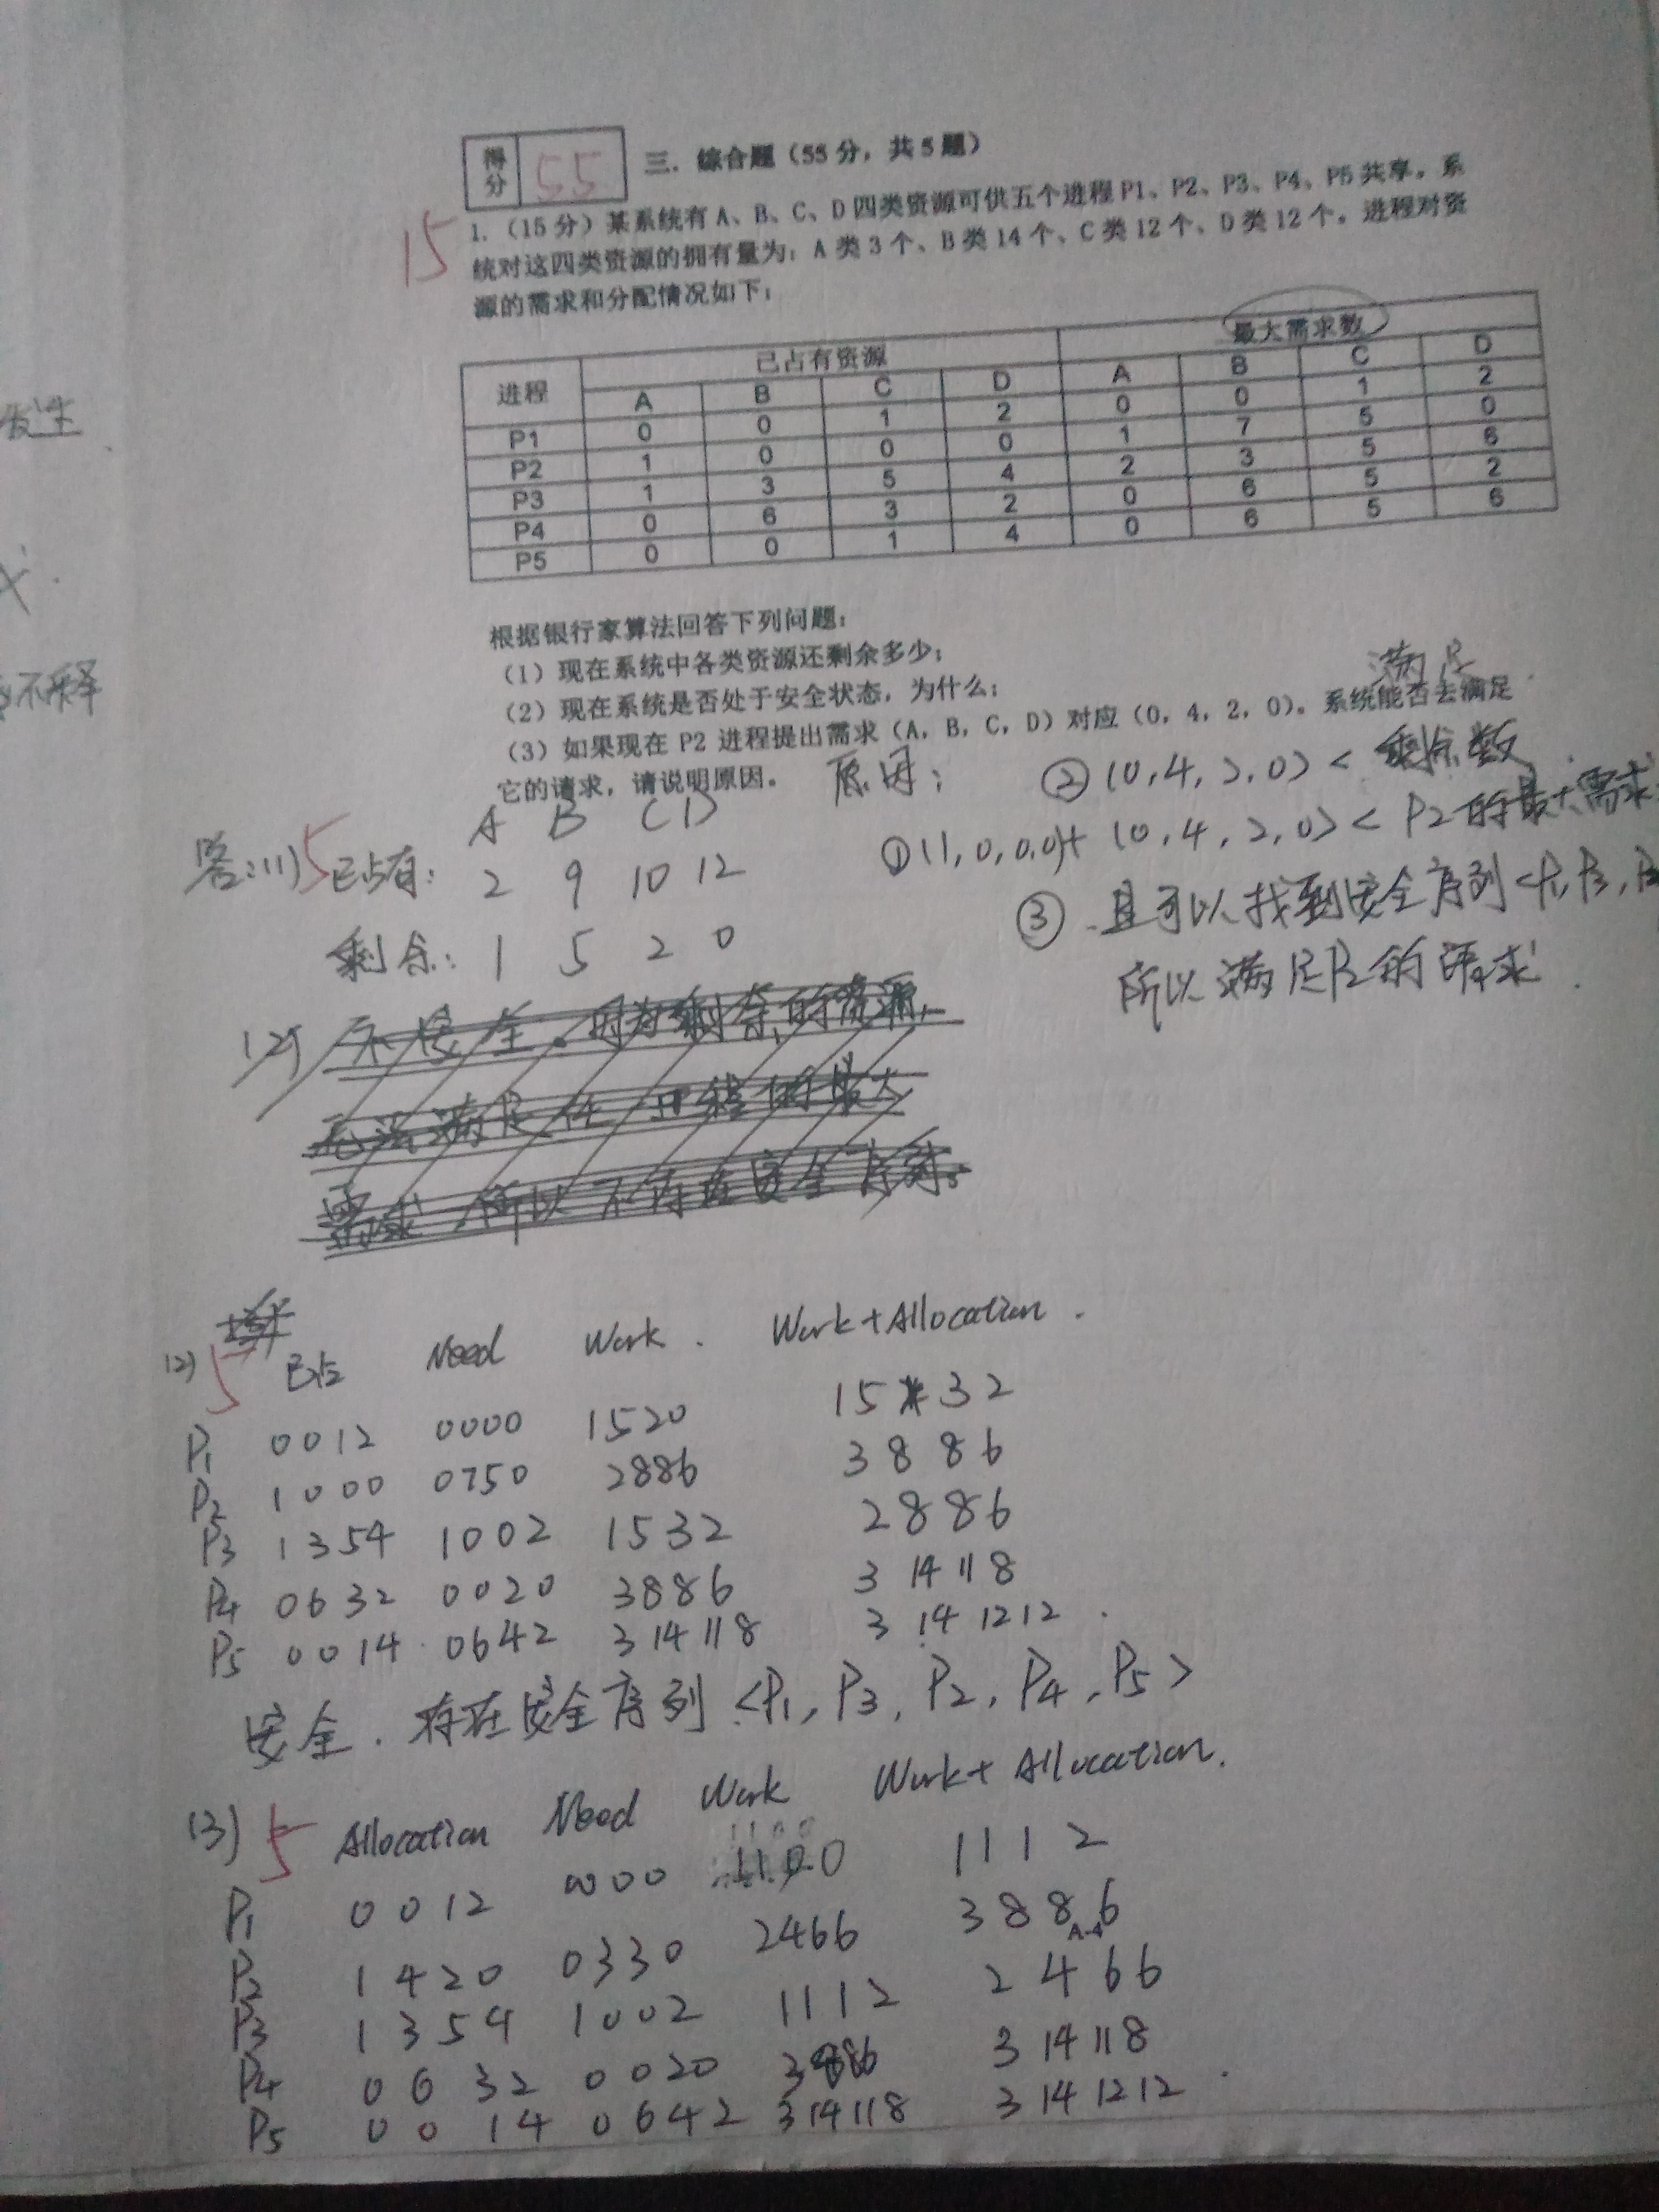 得分 55 三. 综合题（55 分，共 5 题）
15 1.（15 分）某系统有 A、B、C、D 四类资源可供五个进程 P1、P2、P3、P4、P5 共享。系
统对这四类资源的拥有量为：A 类 3 个、B 类 14 个、C 类 12 个、D 类 12 个。进程对资
源的需求和分配情况如下：
进程 已占有资源 最大需求数
A B C D A B C D
P1 0 0 1 2 0 0 1 2
P2 1 0 0 0 1 7 5 0
P3 1 3 5 4 2 3 5 6
P4 0 6 3 2 0 6 5 2
P5 0 0 1 4 0 6 5 6
发生
不释
根据银行家算法回答下列问题：
（1）现在系统中各类资源还剩余多少；
（2）现在系统是否处于安全状态，为什么；
满足
（3）如果现在 P2 进程提出需求（A，B，C，D）对应（0，4，2，0）。系统能否去满足
它的请求，请说明原因。
原因：
②(0,4,2,0)< 剩余数
①(1,0,0,0)+ (0,4,2,0)< P2的最大需求
③ 且可以找到安全序列<P1,P3,P2
所以满足P2的请求.
答:(1) 5 已占有: A B C D
2 9 10 12
剩余: 1 5 2 0
(2) 不安全.因为剩余的资源,
无法满足任一进程的最大
需求,所以不存在安全序列.
(2) 5 已占 Need Work. Work+Allocation.
P1 0012 0000 1520 1532
P2 1000 0750 2886 3886
P3 1354 1002 1532 2886
P4 0632 0020 3886 3 14 11 8
P5 0014 0642 3 14 11 8 3 14 12 12.
安全.存在安全序列<P1,P3,P2,P4,P5>
(3) 5 Allocation Need Work Work+Allocation.
P1 0012 0000 1100 1112
P2 1420 0330 2466 3886
A-4
P3 1354 1002 1112 2466
P4 0632 0020 3886 3 14 11 8
P5 0014 0642 3 14 11 8 3 14 12 12.